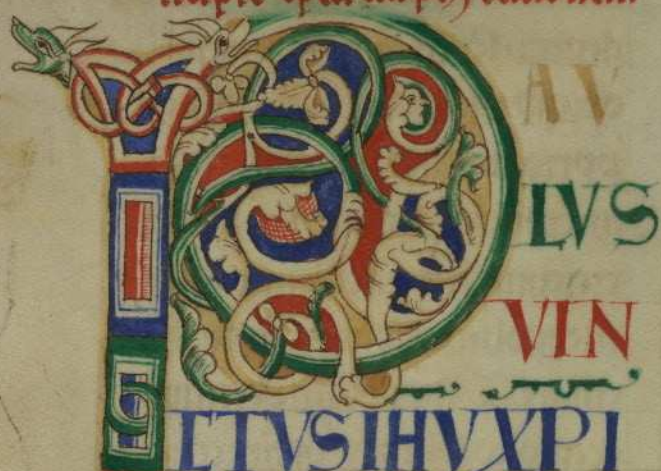 PAV
LVS
VIN
CTVS IHV XPI